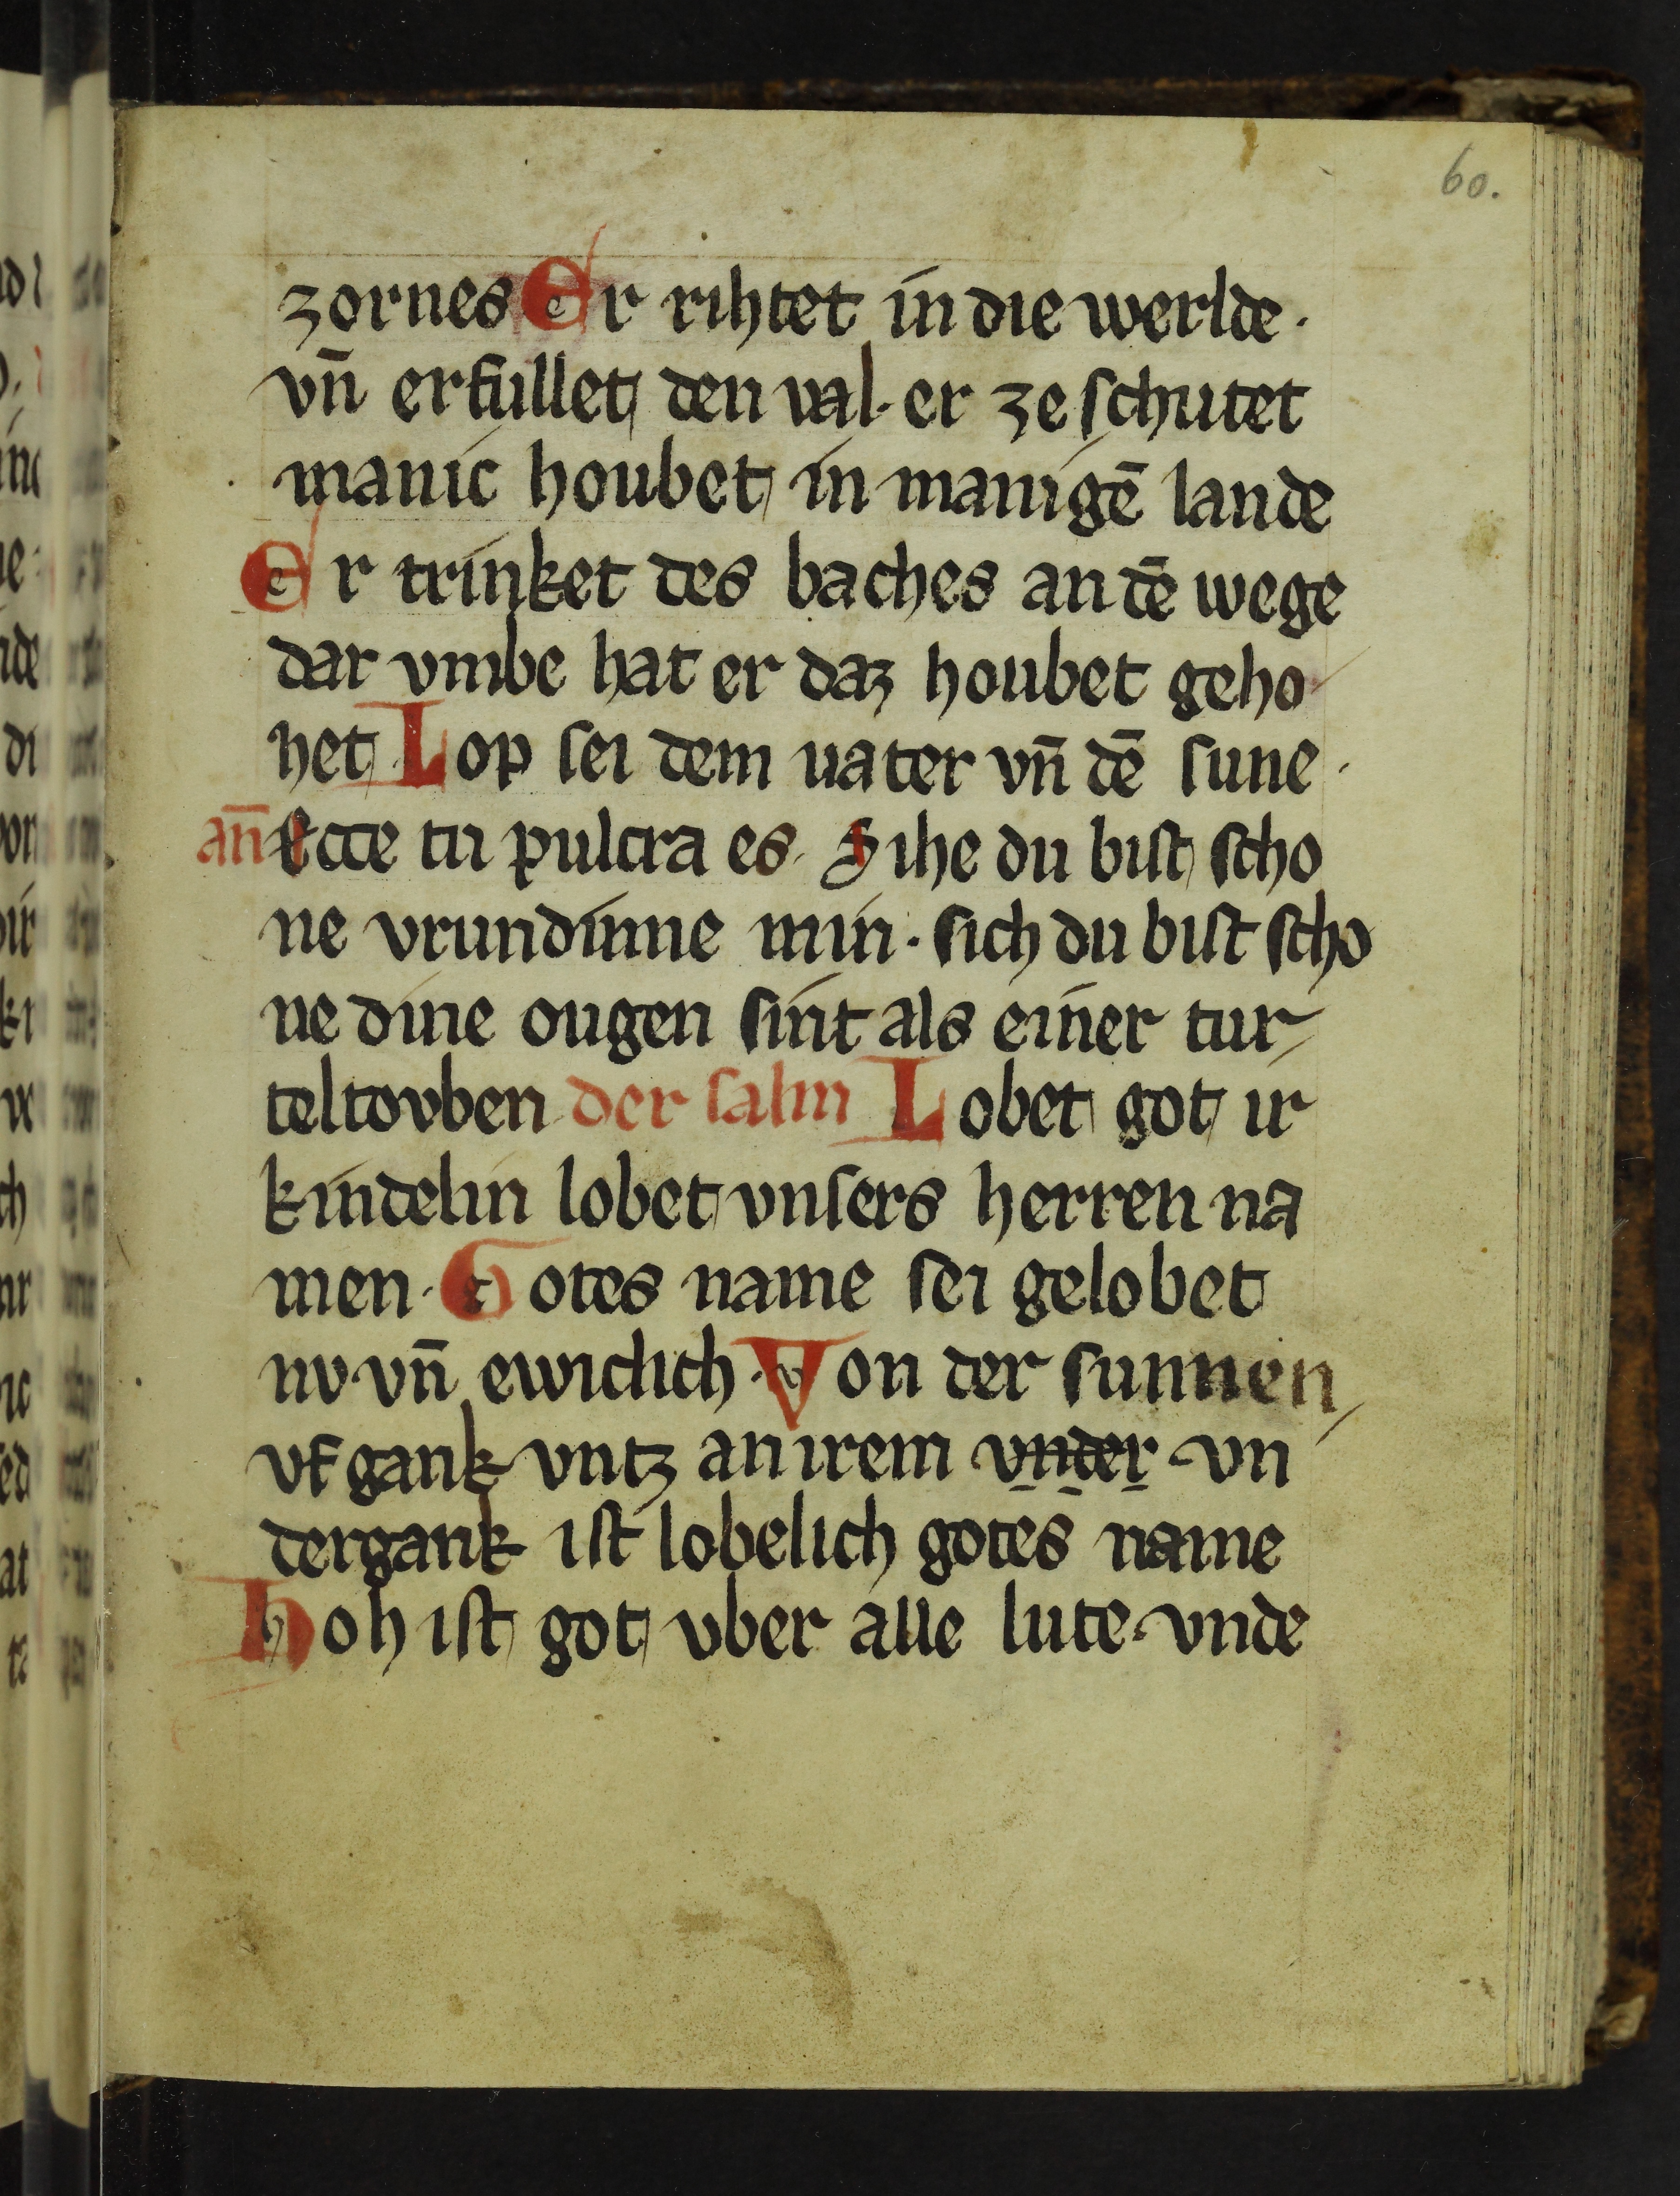 60.
zornes Er rihtet in die werlde·
vn̄ erfullet den val· er ze schutet
manic houbet in manigē lande
Er trinket des baches an dē wege
dar vmbe hat er daz houbet geho
het Lop sei dem uater vn̄ dē sune·
an̄ Ecce tu pulcra es· Sihe du bist scho
ne vrundinne min· sich du bist scho
ne dine ougen sint als einer tur
teltovben der salm Lobet got ir
kindelin lobet vnsers herren na
men· Gotes name sei gelobet
nv vn̄ ewiclich· Von der sunnen
vf gank vntz an irem vnder vn
dergank ist lobelich gotes name
Hoh ist got vber alle lute· vnde